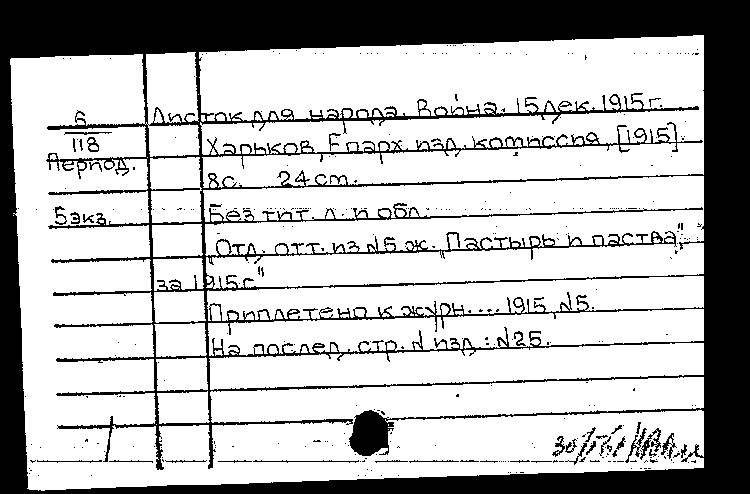 6 Листок для народа. Война. 15 дек. 1915 г.
118 Харьков, Епарх. изд. комиссия, [1915].
Период.
8с. 24 cm.
5 экз. Без тит. л. и обл.
„Отд. отт. из №5 ж. „Пастырь и паства",
за 1915г"
Приплетено к журн. ... 1915, №5.
На послед. стр. № изд.: №25.